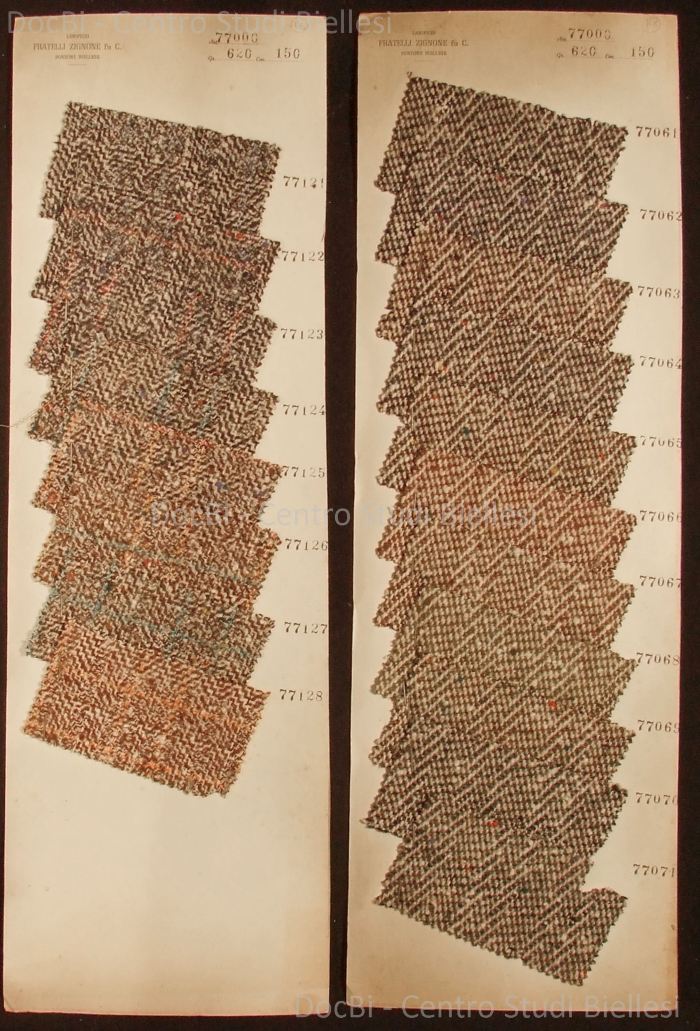 DocBi - Centro Studi Biellesi
LANIFICIO
FRATELLI ZIGNONE fu C.
77000
Gr. 620 Cm. 150
77121
77122
77123
77124
77125
77126
77127
77128
LANIFICIO
FRATELLI ZIGNONE fu C.
77000
Gr. 620 Cm. 150
77061
77062
77063
77064
77065
77066
77067
77068
77069
77070
77071
DocBi - Centro Studi Biellesi
DocBi - Centro Studi Biellesi